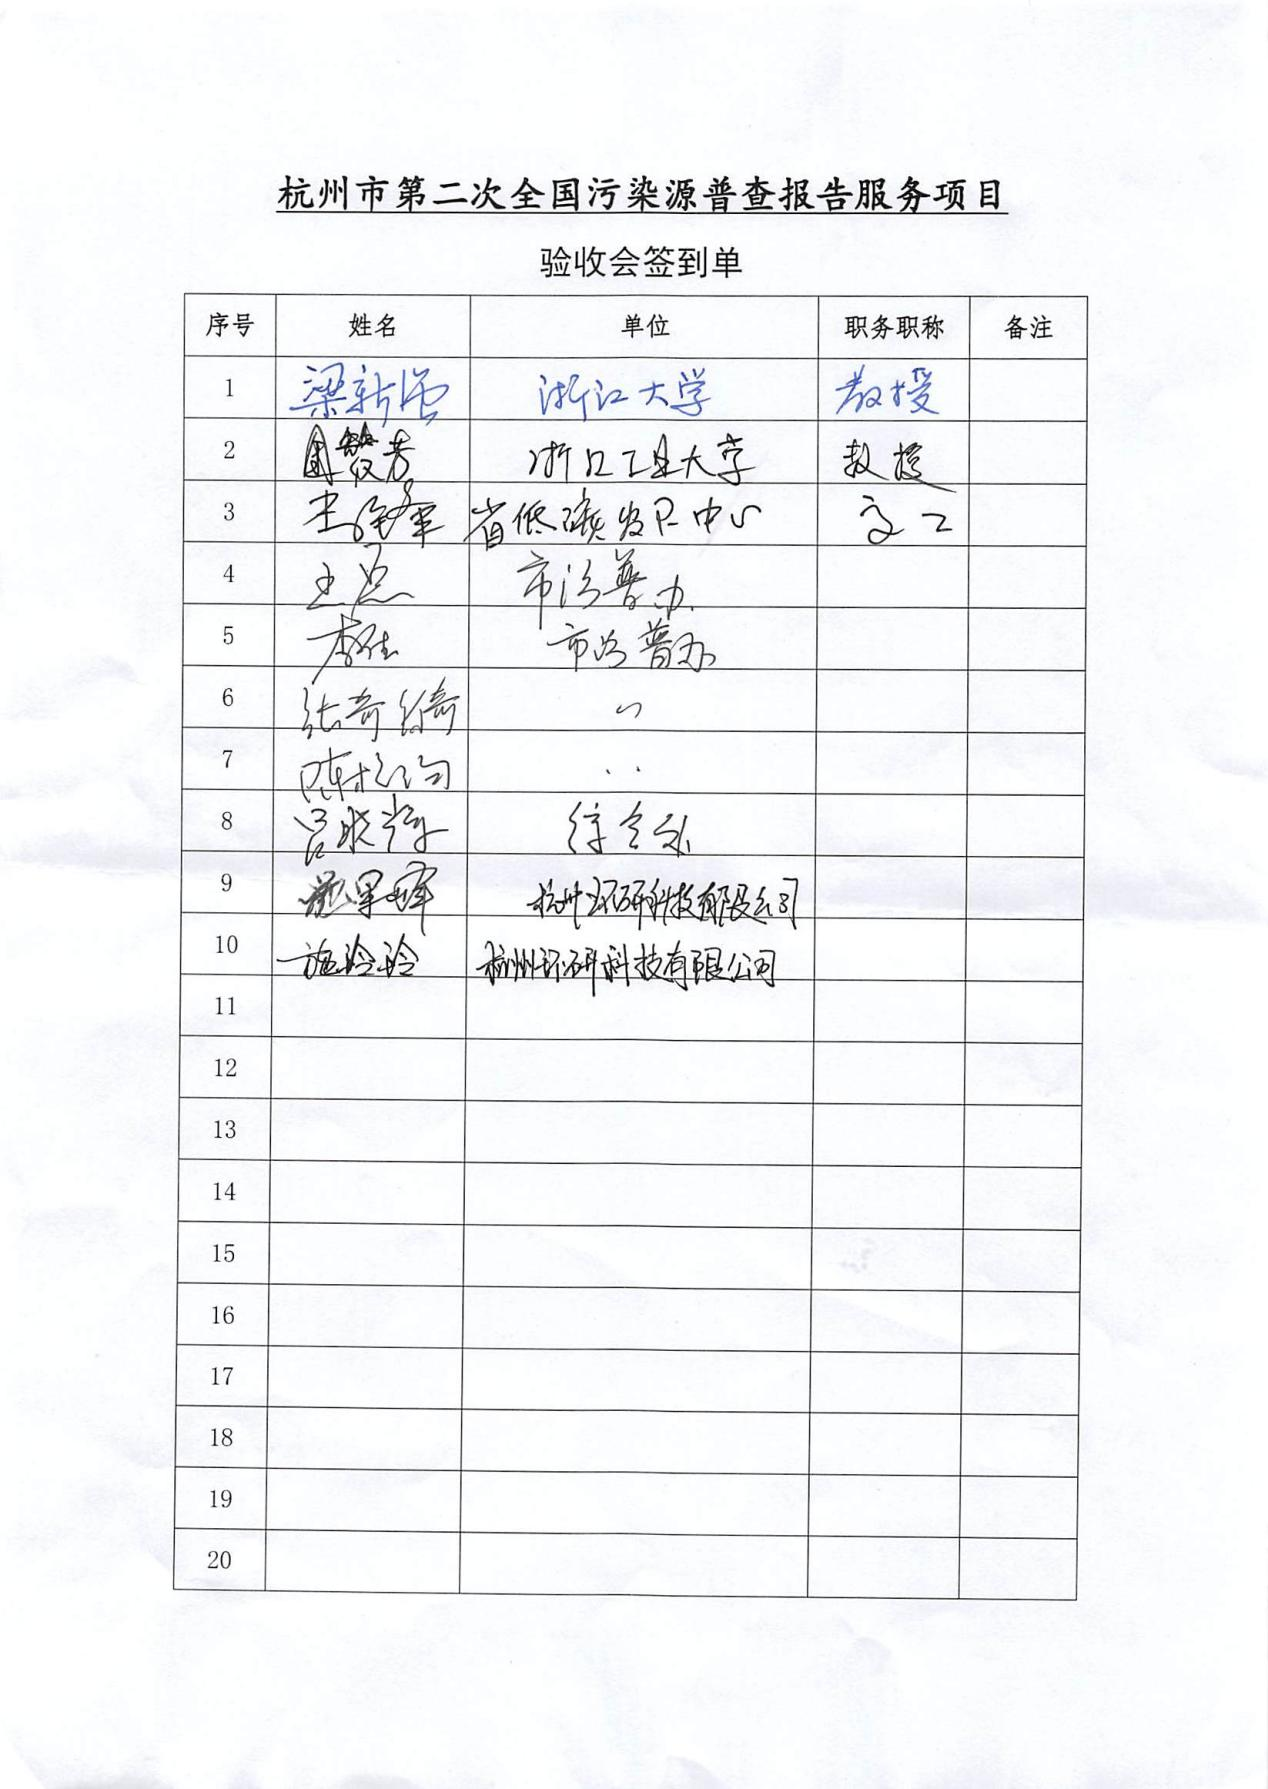 杭州市第二次全国污染源普查报告服务项目
验收会签到单
序号 姓名 单位 职务职称 备注
1 梁新强 浙江大学 教授
2 浙江工业大学 教授
3 省低碳发展中心 高工
4 市污普办
5 李佳 市污普办
6 张奇绮 〃
7 陈 〃
8 吕晓 综合处
9 杭州环研科技有限公司
10 施玲玲 杭州环研科技有限公司
11
12
13
14
15
16
17
18
19
20